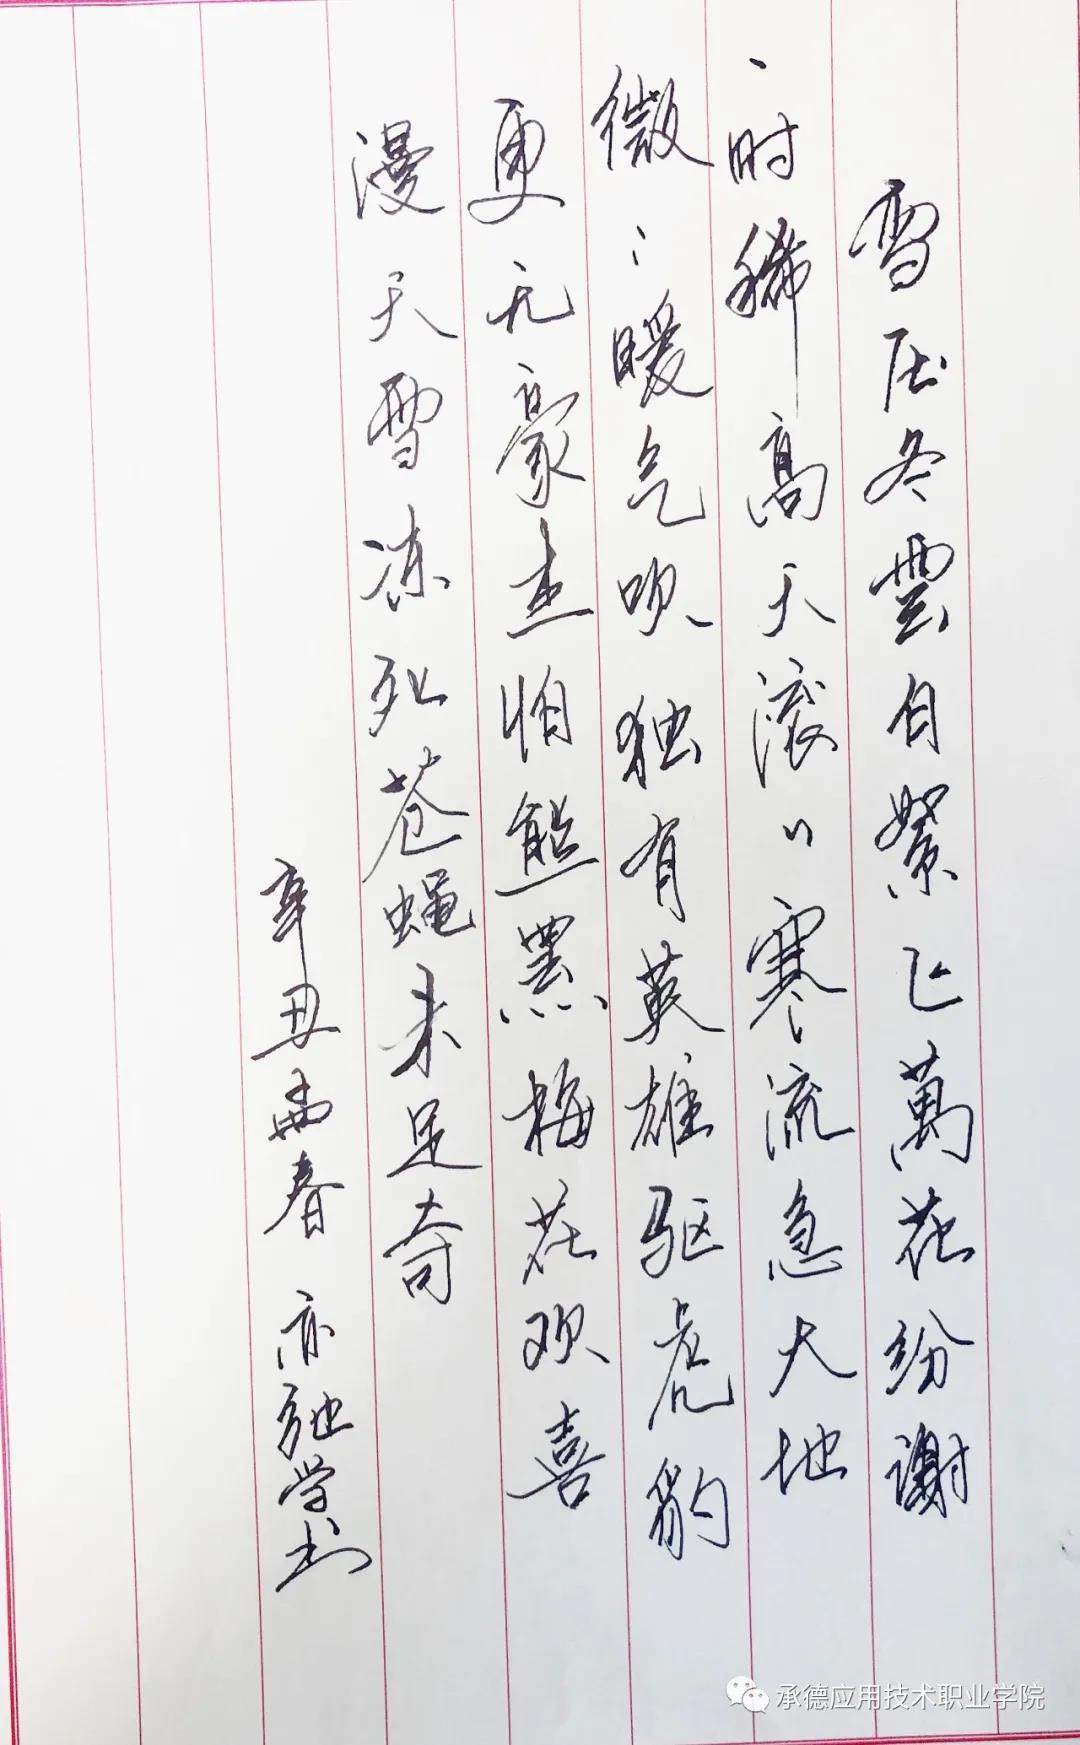 雪压冬雲白絮飞萬花纷谢
一时稀高天滚〃寒流急大地
微〻暖气吹独有英雄驱虎豹
更无豪杰怕熊罴梅花欢喜
漫天雪冻死苍蝇未足奇
辛丑 春 亦 学书
承德应用技术职业学院